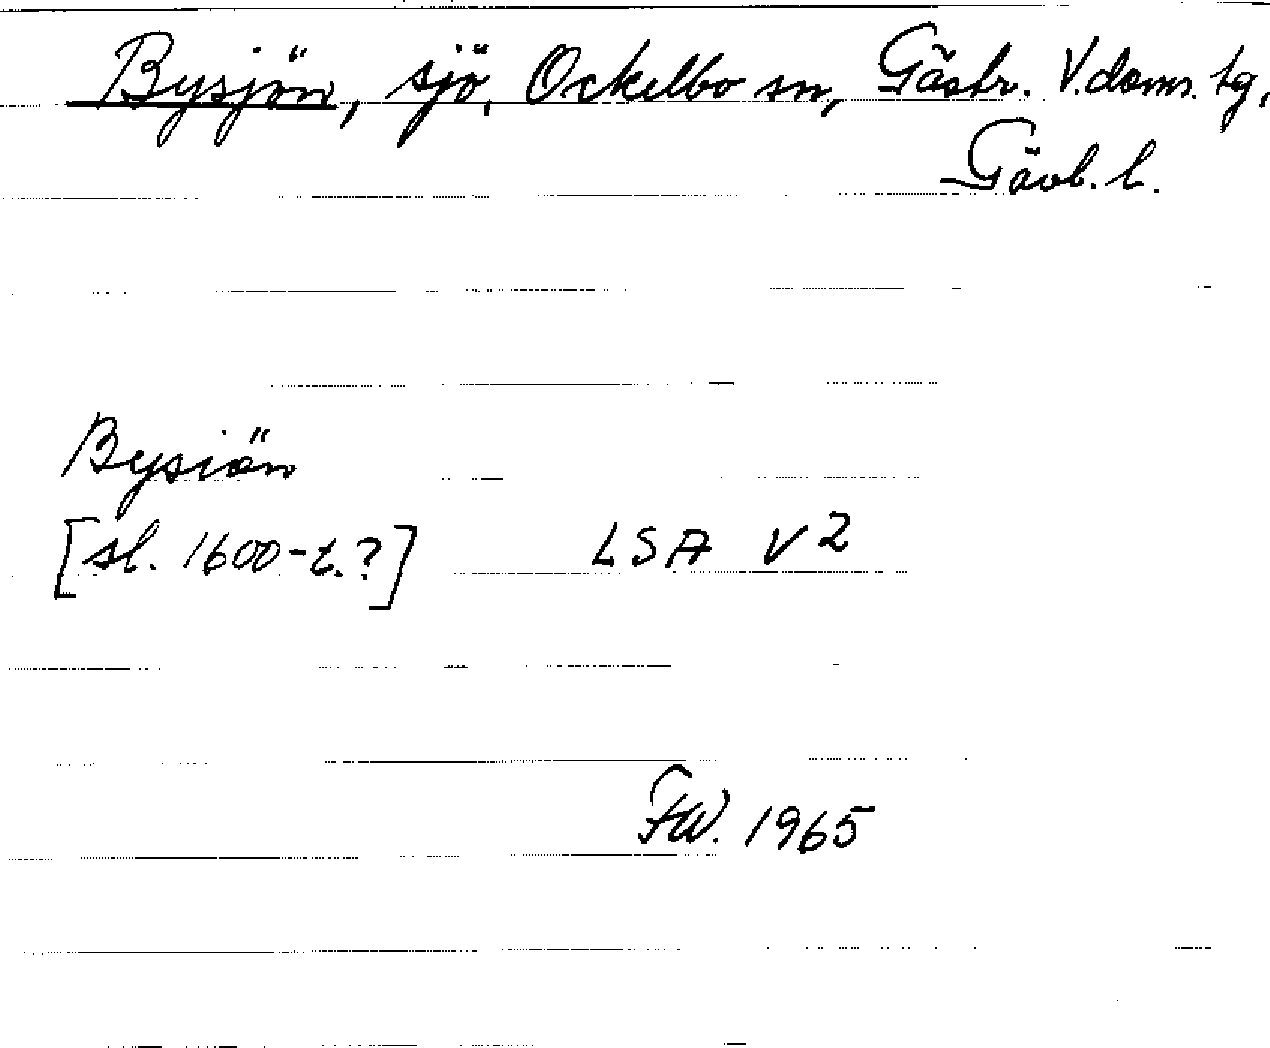 Bysjön, sjö, Ockelbo sn, Gästr. V. doms. tg,
Gävl. l.
Bysiön
[sl. 1600-t.?] LSA V2
FW. 1965